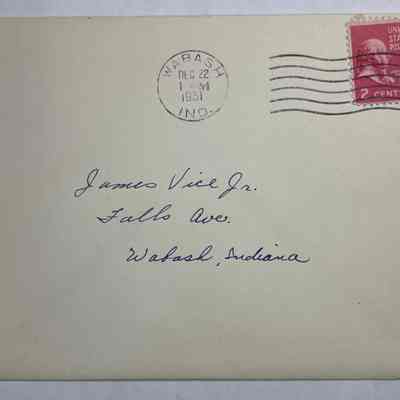 WABASH
DEC 22
1951
IND.
UNI
STA
PO
2 CENT
James Vice Jr.
Falls Ave.
Wabash, Indiana